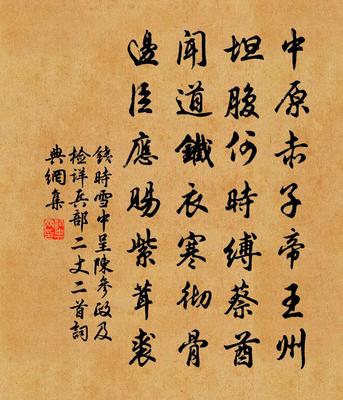 中原赤子帝王州
坦腹何時縛蔡酋
聞道鐵衣寒徹骨
邊臣應賜紫茸裘
錢時雪中呈陳參政及
檢詳兵部二丈二首詞
典網集